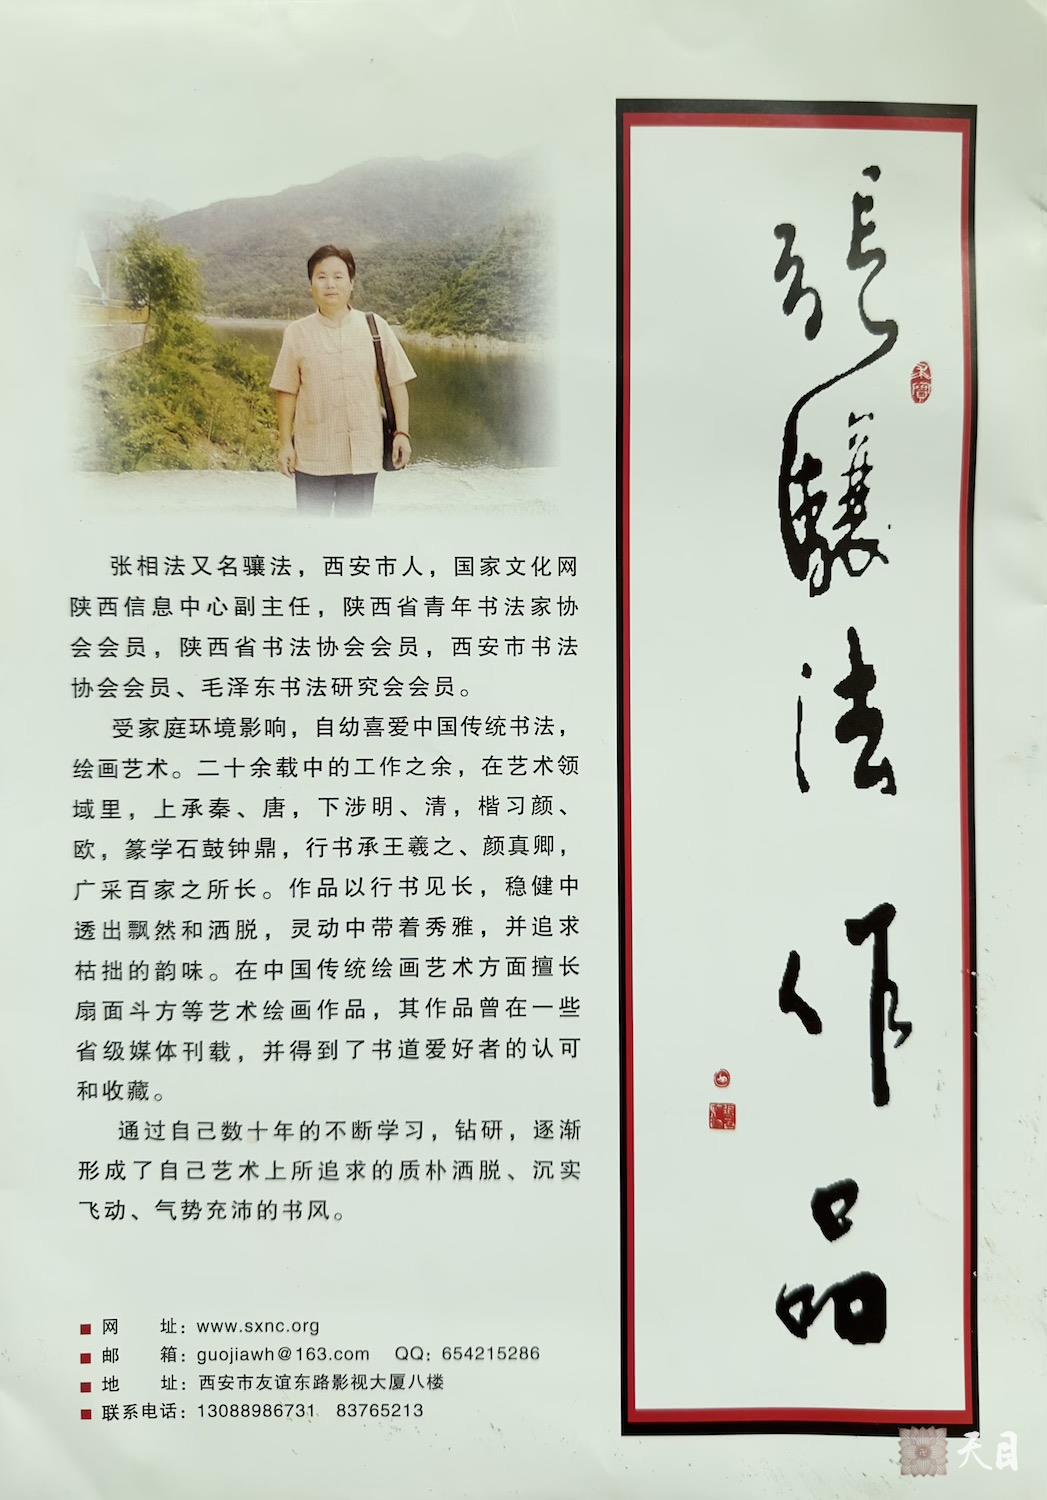 张相法又名骧法，西安市人，国家文化网
陕西信息中心副主任，陕西省青年书法家协
会会员，陕西省书法协会会员，西安市书法
协会会员、毛泽东书法研究会会员。
受家庭环境影响，自幼喜爱中国传统书法，
绘画艺术。二十余载中的工作之余，在艺术领
域里，上承秦、唐，下涉明、清，楷习颜、
欧，篆学石鼓钟鼎，行书承王羲之、颜真卿，
广采百家之所长。作品以行书见长，稳健中
透出飘然和洒脱，灵动中带着秀雅，并追求
枯拙的韵味。在中国传统绘画艺术方面擅长
扇面斗方等艺术绘画作品，其作品曾在一些
省级媒体刊载，并得到了书道爱好者的认可
和收藏。
通过自己数十年的不断学习，钻研，逐渐
形成了自己艺术上所追求的质朴洒脱、沉实
飞动、气势充沛的书风。
网　　址：www.sxnc.org
邮　　箱：guojiawh@163.com　QQ：654215286
地　　址：西安市友谊东路影视大厦八楼
联系电话：13088986731　83765213
張驤法作品
天目